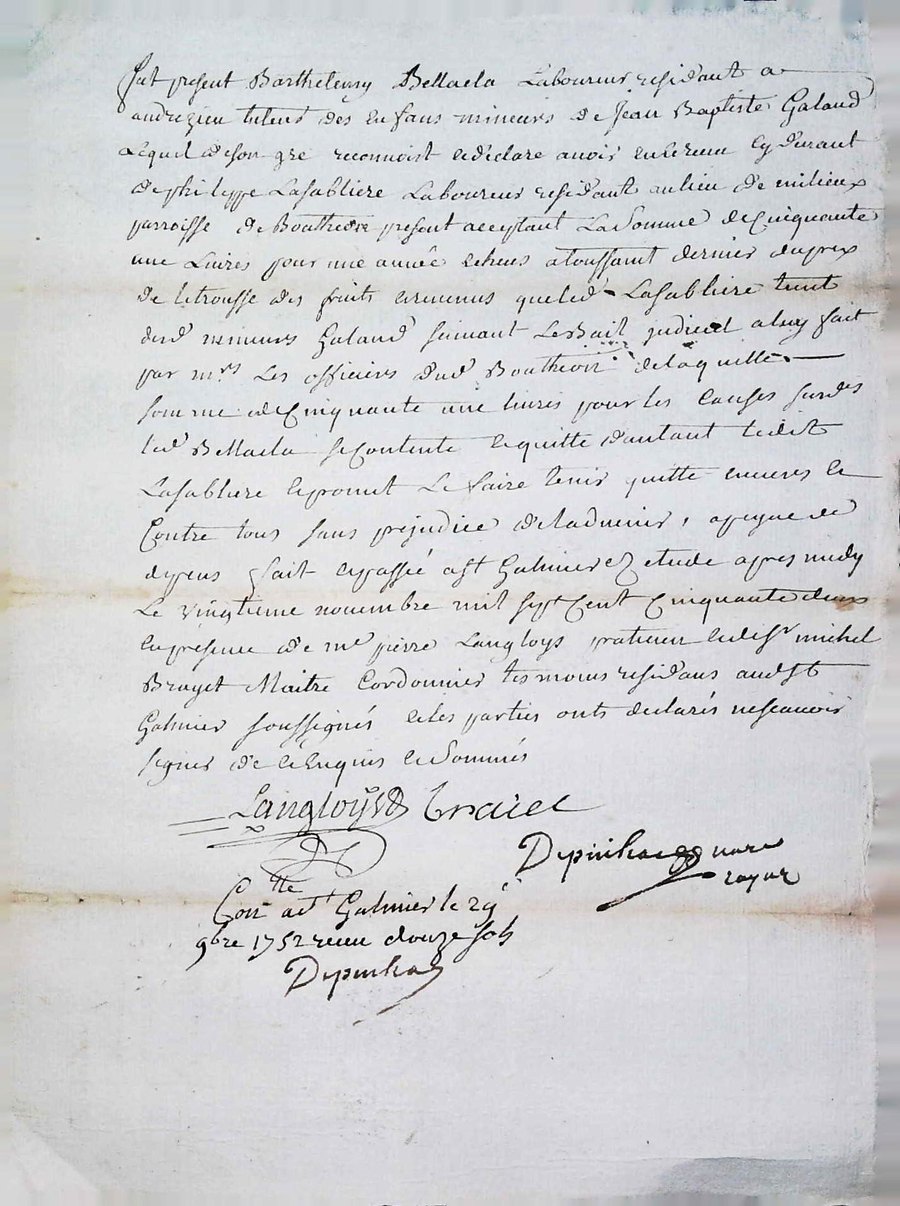 fut present Barthelemy Bellacla Laboureur residant a
andrezieu tuteur des enfans mineurs de Jean Baptiste Galand
Lequel de son gre reconnoist et declare avoir eu et receu cy durant
de philippe Lasabliere Laboureur residant au lieu de milieux
parroisse de Boutheon present acceptant La Somme de Cinquante
une Livres pour une année echeue a toussaint dernier du prix
de letrousse des fruits et revenus que led. Lasabliere tient
desd mineurs Galand suivant Le Bail judiciel a luy fait
par mrs Les officiers dud Boutheon de laquelle
somme de Cinquante une livres pour les causes susdes
led Bellacla se Contente et quitte d'autant ledit
Lasabliere et promet Le faire tenir quitte envers et
Contre tous sans prejudice de ladvenir, a peyne de
depens fait et passé a st Galmier ez etude apres midy
Le vingtieme novembre mil sept Cent Cinquante deux
en presence de me pierre Langloys praticien et de sr michel
Brayet Maitre Cordonnier tesmoins residans aud st
Galmier soussignés et les parties onts declarés ne scavoir
signer de ce Enquis et Sommés
Langloys Braiet
Depinhac no re
royal
Conlle a st Galmier le 29
9bre 1752 receu douze sols
Depinhac